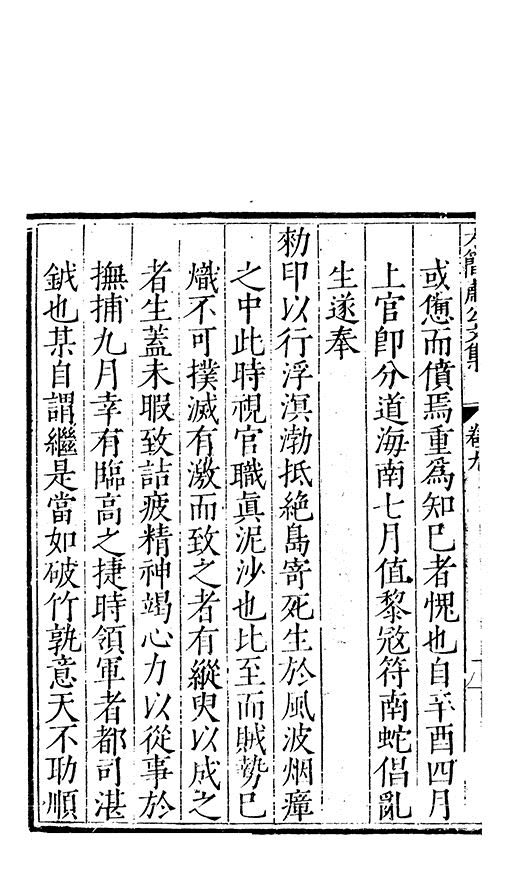 或僡而僨焉重爲知巳者愧也自辛酉四月
上官卽分道海南七月值黎冦符南蛇倡亂
生遂奉
勑印以行浮溟渤抵絶島寄死生於風波烟瘴
之中此時視官職眞泥沙也比至而賊勢巳
熾不可撲滅有激而致之者有縱臾以成之
者生蓋未暇致詰疲精神竭心力以從事於
撫捕九月幸有臨高之捷時領軍者都司湛
鉞也某自謂繼是當如破竹孰意天不助順
卷九